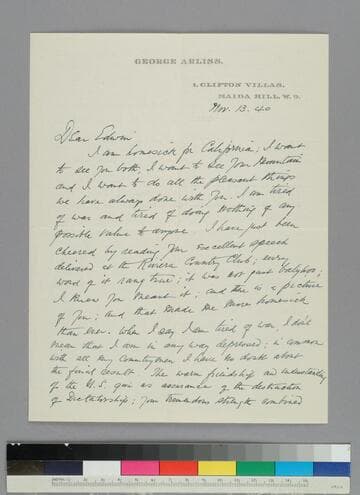 GEORGE ARLISS.
1, CLIFTON VILLAS,
MAIDA HILL, W. 9.
Nov. 13. 40
Dear Edwin
I am homesick for California; I want
to see you both, I want to see your Mountain
and I want to do all the pleasant things
we have always done with you. I am tired
of war and tired of doing nothing of any
possible value to anyone. I have just been
cheered by reading your excellent speech
delivered at the Riviera Country Club; every
word of it rang true; it was not just ballyhoo;
I knew you meant it; and there is a picture
of you; and that made me more homesick
than ever. When I say I am tired of war, I don't
mean that I am in any way depressed; in common
with all my countrymen I have no doubt about
the final result. The warm friendship and understanding
of the U.S. give us assurance of the destruction
of Dictatorships; your tremendous strength combined